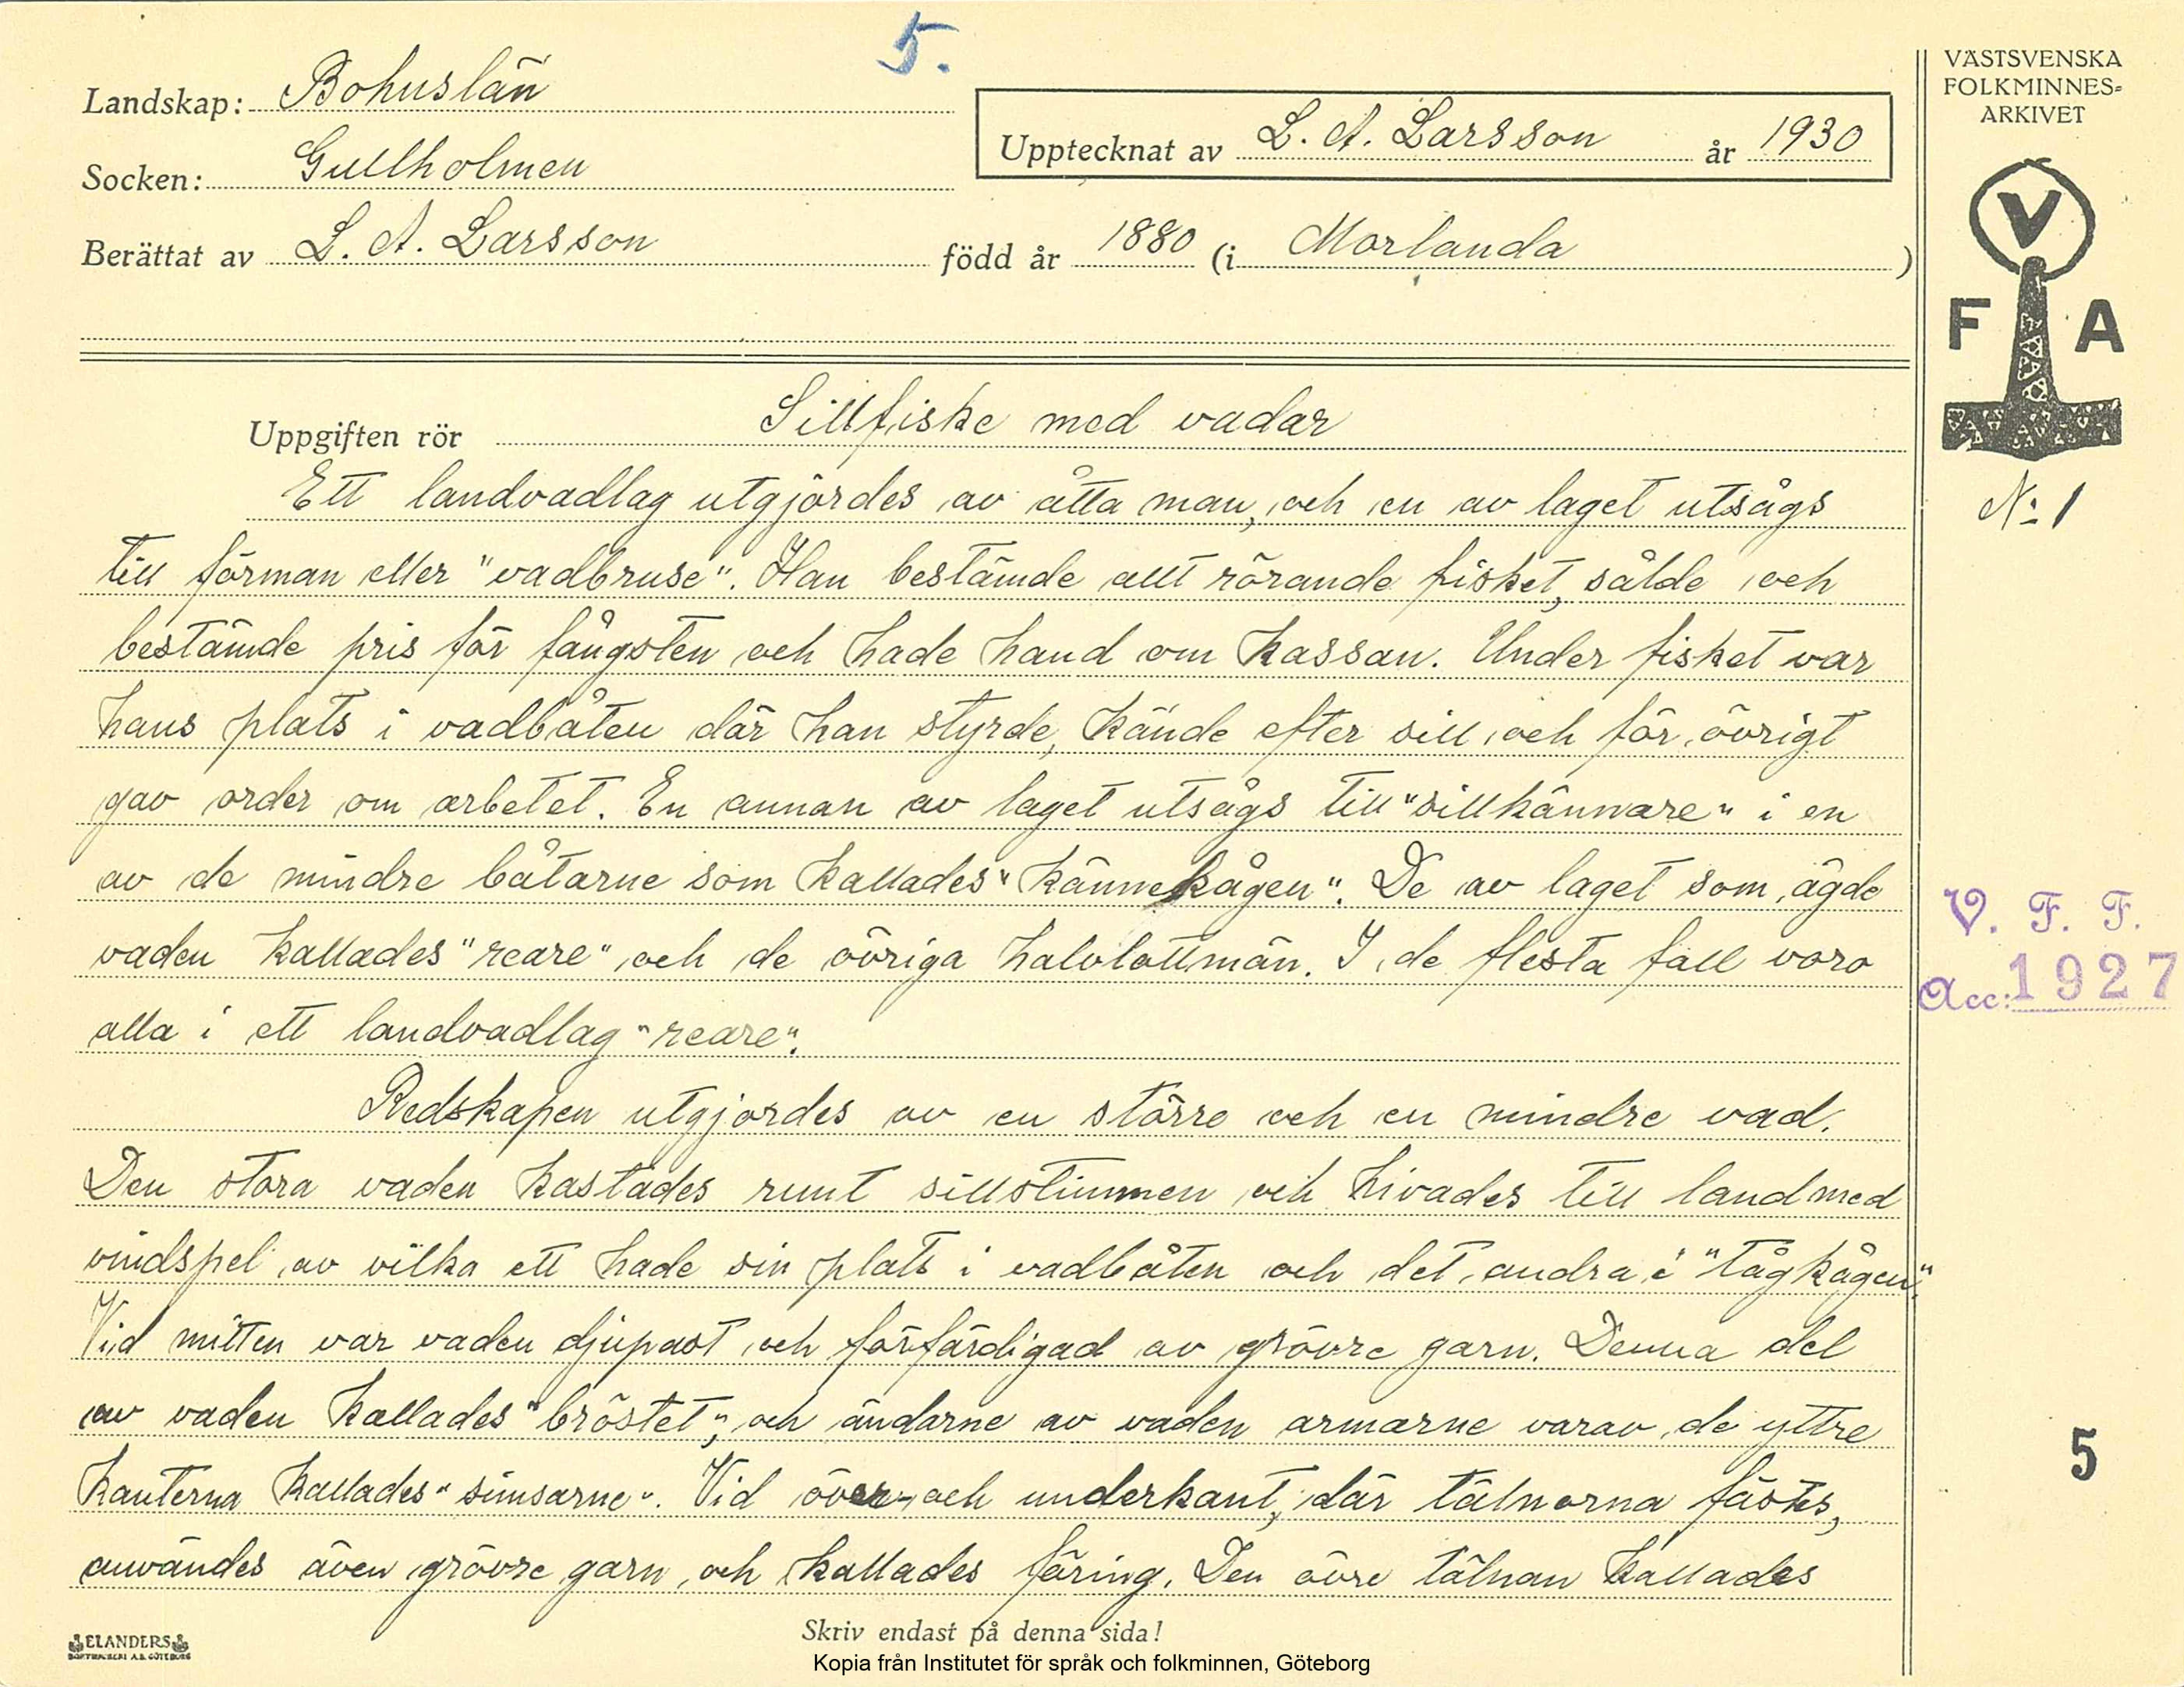 5.
Landskap: Bohuslän
Socken: Gullholmen
Berättat av L. A. Larsson född år 1880 (i Morlanda )
Upptecknat av L. A. Larsson år 1930
VÄSTSVENSKA
FOLKMINNES=
ARKIVET
V
F A
Nº 1
Uppgiften rör Sillfiske med vadar
Ett landvadlag utgjordes av åtta man, och en av laget utsågs
till förman eller "vadbruse". Han bestämde allt rörande fisket, sålde och
bestämde pris för fångsten och hade hand om kassan. Under fisket var
hans plats i vadbåten där han styrde, kände efter sill och för övrigt
gav order om arbetet. En annan av laget utsågs till "sillkännare" i en
av de mindre båtarne som kallades "kännekågen". De av laget som ägde
vaden kallades "reare" och de övriga halvlottmän. I de flesta fall voro
alla i ett landvadlag "reare".
Redskapen utgjordes av en större och en mindre vad.
Den stora vaden kastades runt sillstimmen och hivades till land med
vindspel av vilka ett hade sin plats i vadbåten och det andra i "tågkågen".
Vid mitten var vaden djupast och förfärdigad av grövre garn. Denna del
av vaden kallades "bröstet", och ändarne av vaden armarne varav de yttre
kanterna kallades "simsarne". Vid över- och underkant, där tälnorna fästes,
användes även grövre garn och kallades föring. Den övre tälnan kallades
V. F. F.
Acc: 1927
5
Skriv endast på denna sida!
ELANDERS
BOKTRYCKERI A.B. GÖTEBORG
Kopia från Institutet för språk och folkminnen, Göteborg